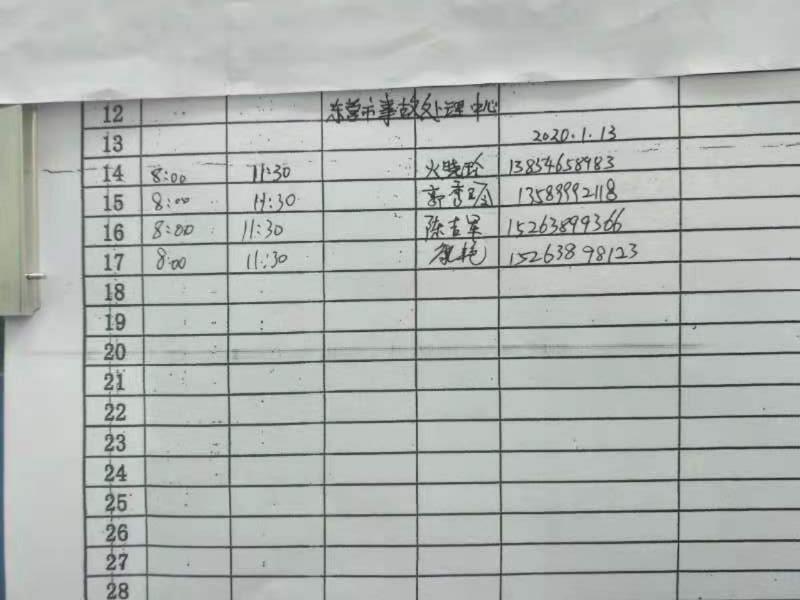 12 东营市事故处理中心
13 2020.1.13
14 8:00 11:30 火晓玲 13854658983
15 8:00 11:30 郭秀玲 13589992118
16 8:00 11:30 陈吉军 15263899366
17 8:00 11:30 艳 15263898123
18
19
20
21
22
23
24
25
26
27
28